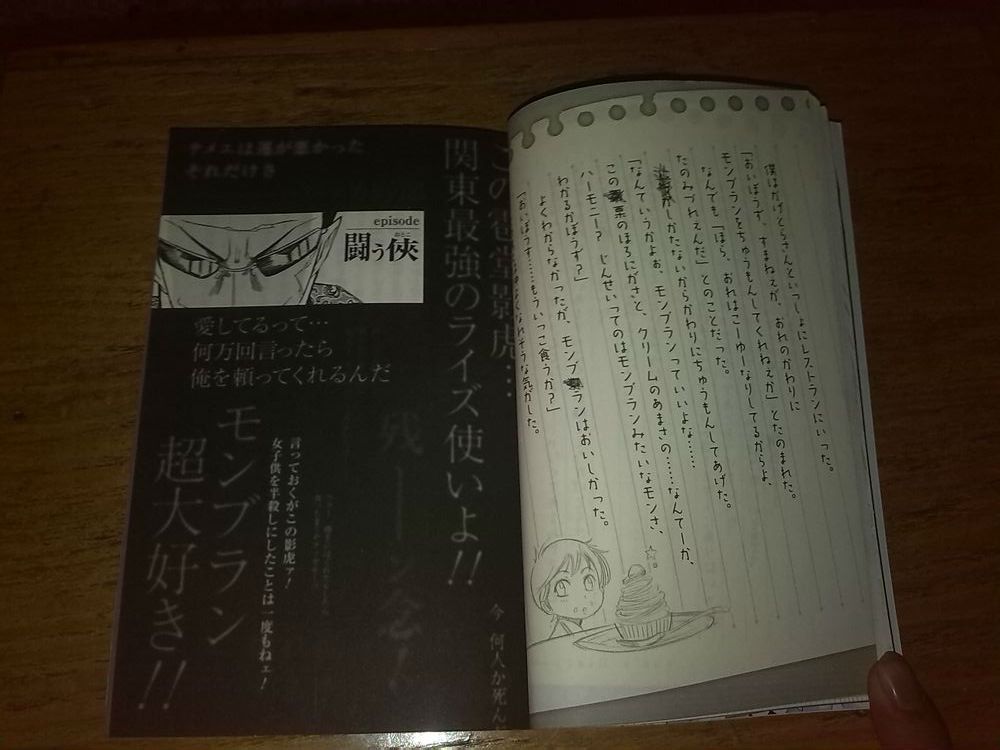 僕はかげとらさんといっしょにレストランにいった。
「おいぼうず、すまねえが、おれのかわりに
モンブランをちゅうもんしてくれねえか」とたのまれた。
なんでも「ほら、おれはこーゆーなりしてるからよ、
たのみづれえんだ」とのことだった。
しかたないからかわりにちゅうもんしてあげた。
「なんていうかよぉ、モンブランっていいよな……
この栗のほろにがさと、クリームのあまさの……なんてーか、
ハーモニー?じんせいってのはモンブランみたいなモンさ、
わかるかぼうず?」
よくわからなかったが、モンブランはおいしかった。
「おいぼうず……もういっこ食うか?」
なれそうな気がした。
この巻堂影虎…
関東最強のライズ使いよ!!
今 何人か死ん
テメエは運が悪かった
それだけさ
episode
闘う侠
おとこ
愛してるって…
何万回言ったら
俺を頼ってくれるんだ
言っておくがこの影虎ァ!
女子供を半殺しにしたことは一度もねェ!
モンブラン
超大好き!!